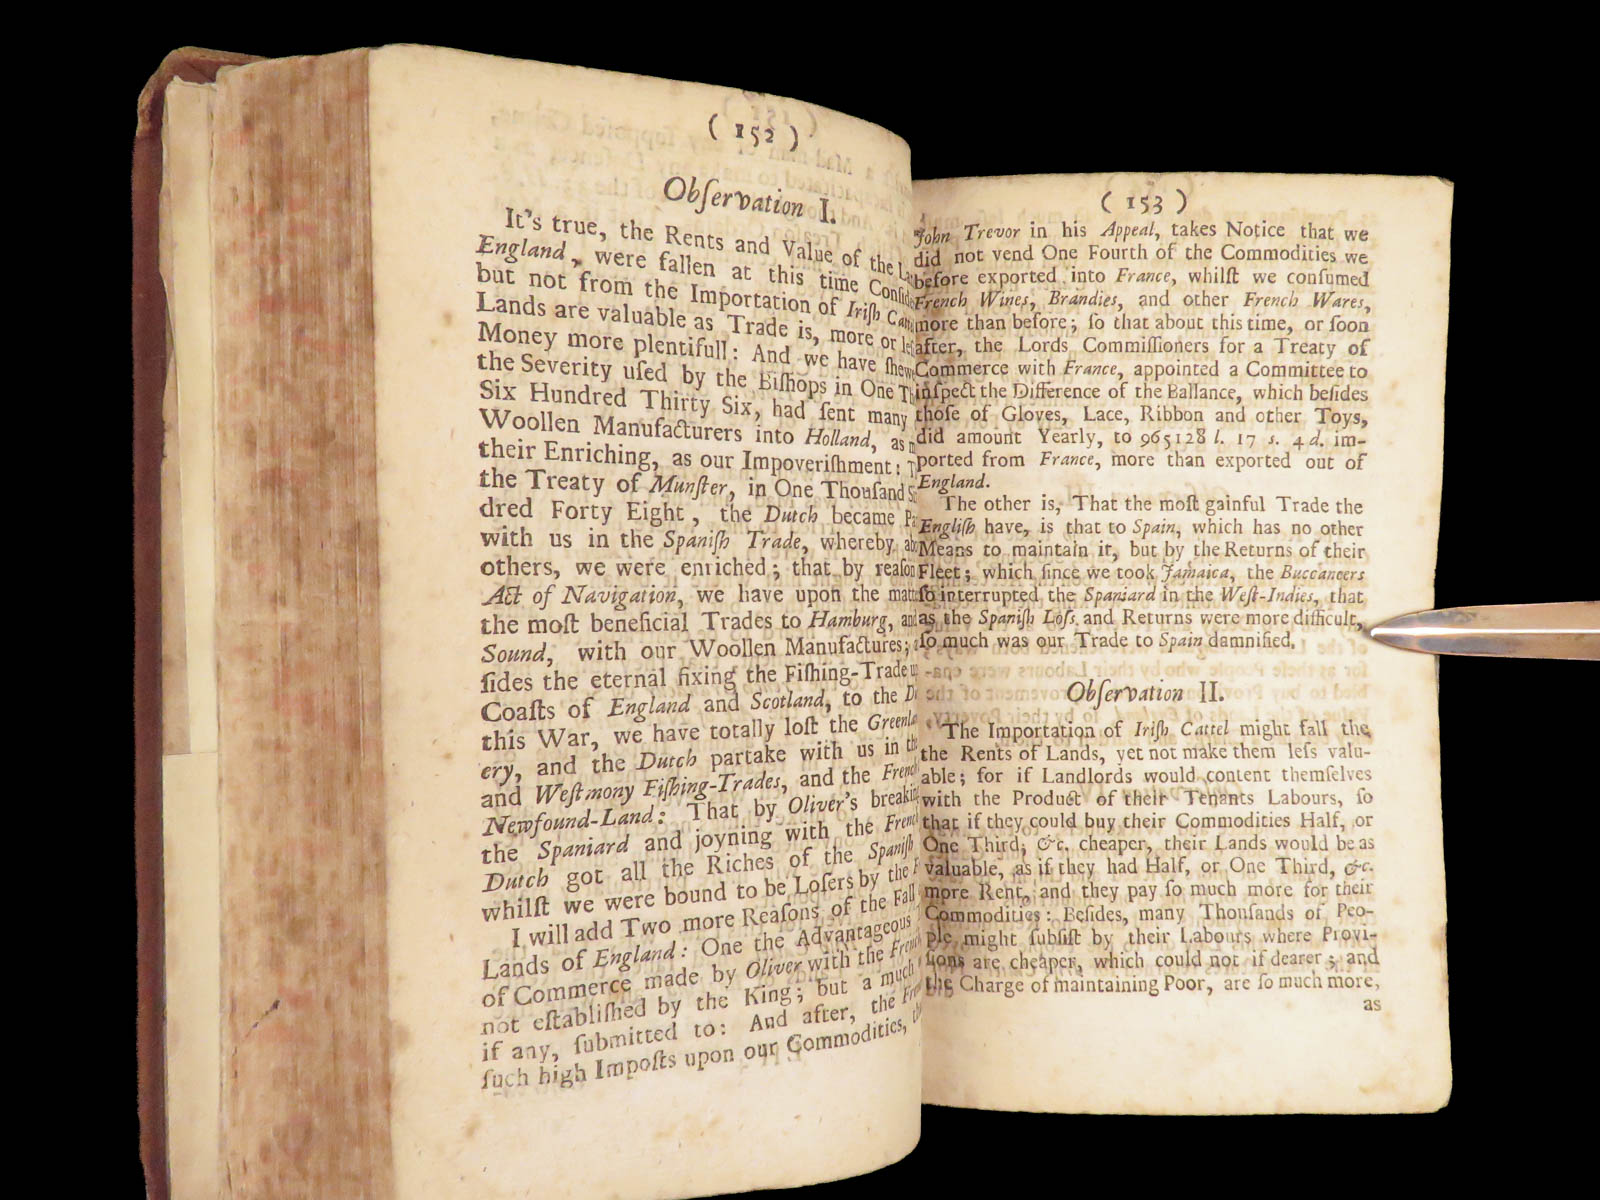 ( 152 )
Obſervation I.
It's true, the Rents and Value of the
England, were fallen at this time
but not from the Importation of Iriſh
Lands are valuable as Trade is, more or
Money more plentifull: And we have
the Severity uſed by the Biſhops in One
Six Hundred Thirty Six, had ſent many
Woollen Manufacturers into Holland, as
their Enriching, as our Impoveriſhment:
the Treaty of Munſter, in One Thouſand
dred Forty Eight, the Dutch became
with us in the Spaniſh Trade, whereby
others, we were enriched; that by reaſon
Act of Navigation, we have upon the
the moſt beneficial Trades to Hamburg,
Sound, with our Woollen Manufactures;
ſides the eternal fixing the Fiſhing-Trade
Coaſts of England and Scotland, to the
this War, we have totally loſt the
ery, and the Dutch partake with us in
and Weſtmony Fiſhing-Trades, and the
Newfound-Land: That by Oliver's
the Spaniard and joyning with the
Dutch got all the Riches of the Spaniſh
whilſt we were bound to be Loſers by the
I will add Two more Reaſons of the Fall
Lands of England: One the Advantageous
of Commerce made by Oliver with the
not eſtabliſhed by the King; but a much
if any, ſubmitted to: And after, the
ſuch high Impoſts upon our Commodities,
( 153 )
John Trevor in his Appeal, takes Notice that we
did not vend One Fourth of the Commodities we
before exported into France, whilſt we conſumed
French Wines, Brandies, and other French Wares,
more than before; ſo that about this time, or ſoon
after, the Lords Commiſſioners for a Treaty of
Commerce with France, appointed a Committee to
inſpect the Difference of the Ballance, which beſides
thoſe of Gloves, Lace, Ribbon and other Toys,
did amount Yearly, to 965128 l. 17 s. 4 d. im-
ported from France, more than exported out of
England.
The other is, That the moſt gainful Trade the
Engliſh have, is that to Spain, which has no other
Means to maintain it, but by the Returns of their
Fleet; which ſince we took Jamaica, the Buccaneers
ſo interrupted the Spaniard in the Weſt-Indies, that
as the Spaniſh Loſs and Returns were more difficult,
ſo much was our Trade to Spain damnified.
Obſervation II.
The Importation of Iriſh Cattel might fall the
the Rents of Lands, yet not make them leſs valu-
able; for if Landlords would content themſelves
with the Product of their Tenants Labours, ſo
that if they could buy their Commodities Half, or
One Third, &c. cheaper, their Lands would be as
valuable, as if they had Half, or One Third, &c.
more Rent, and they pay ſo much more for their
Commodities: Beſides, many Thouſands of Peo-
ple might ſubſiſt by their Labours where Provi-
ſions are cheaper, which could not if dearer; and
the Charge of maintaining Poor, are ſo much more,
as